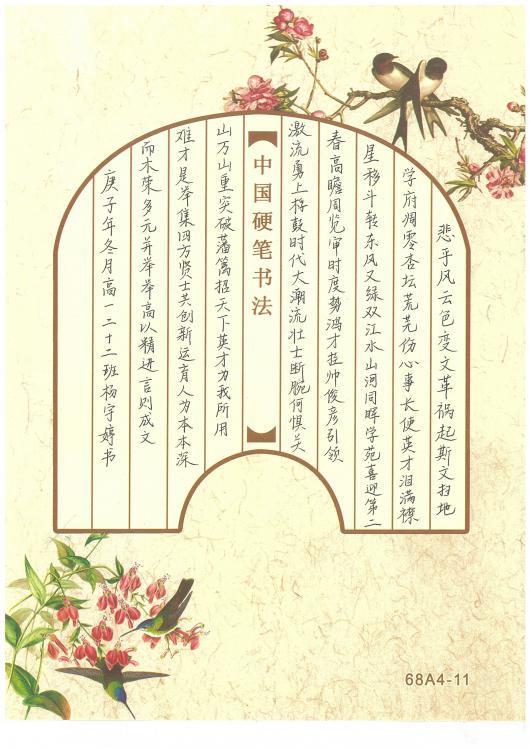 悲乎风云色变文革祸起斯文扫地
学府凋零杏坛荒芜伤心事长使英才泪满襟
星移斗转东风又绿双江水山河同晖学苑喜迎第二
春高瞻周览审时度势鸿才挂帅俊彦引领
激流勇上桴鼓时代大潮流壮士断腕何惧关
中国硬笔书法
山万山重突破藩篱招天下英才为我所用
难才是举集四方贤士共创新运育人为本本深
而木荣多元并举举高以精进言则成文
庚子年冬月高一二十二班杨宇婷书
68A4-11